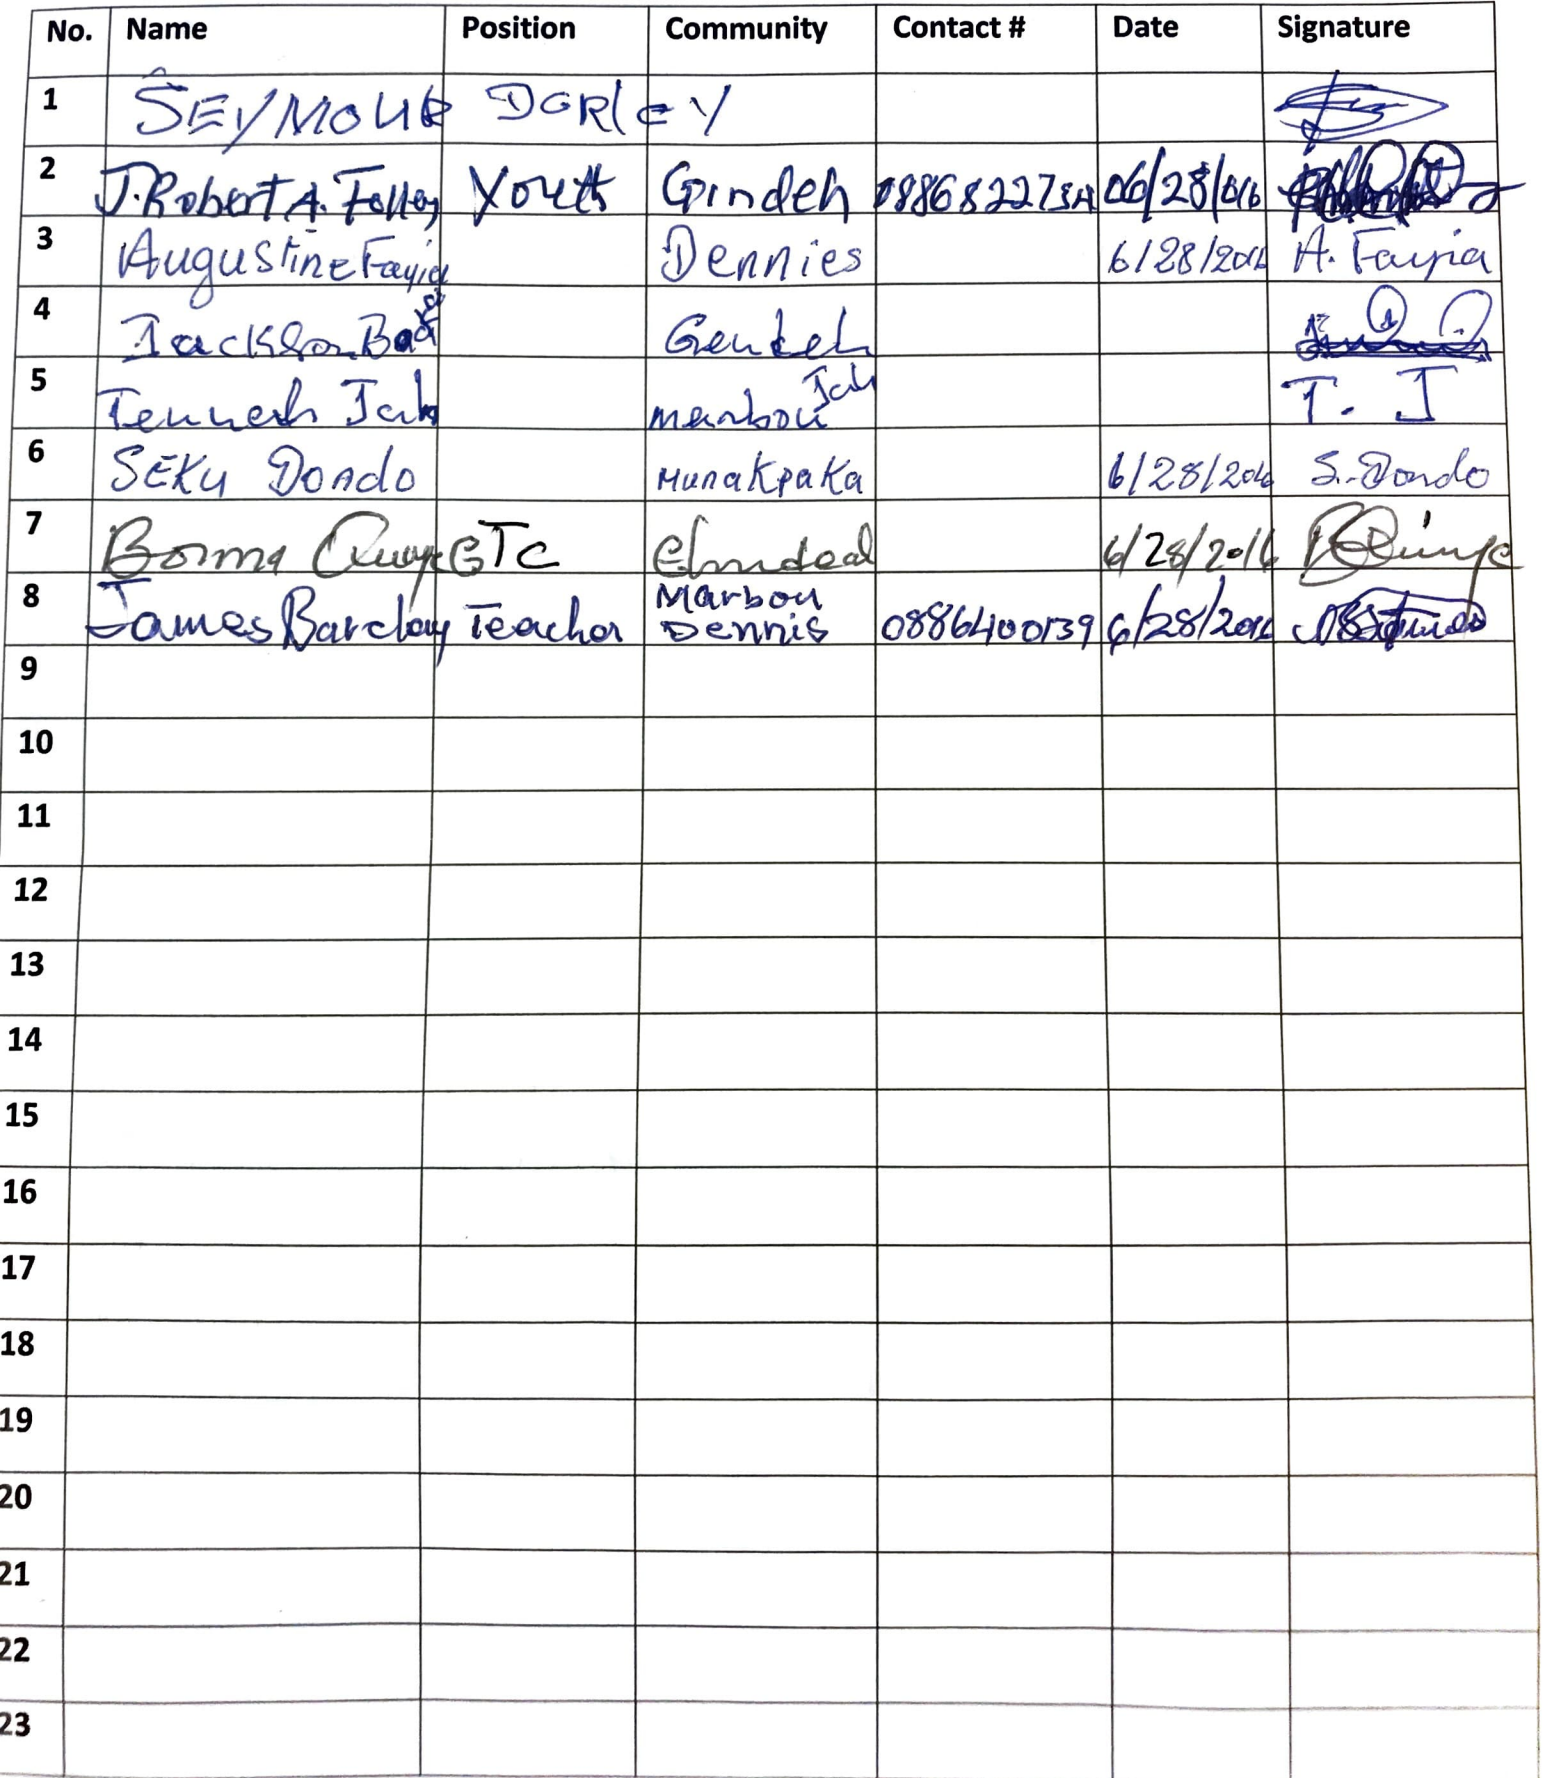 No. Name Position Community Contact # Date Signature
1 SEYMOUR DORLEY
2 J. Robert A. Folley Youth Gindeh 06/28/016
3 Augustine Fayia Dennies 6/28/2016 A. Fayia
4 Jackson
5 Tenneh Jah T. J
6 SEKU Dondo Munakpaka 6/28/2016 S. Dondo
7 Borma GTC 6/28/2016
8 James Barclay Teacher Marbou Dennis 0886400139 6/28/2016
9
10
11
12
13
14
15
16
17
18
19
20
21
22
23